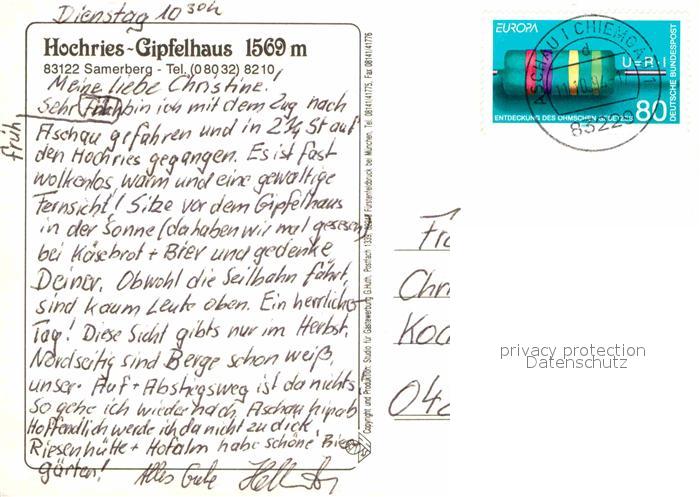 Dienstag 10³⁰h
Hochries-Gipfelhaus 1569 m
83122 Samerberg - Tel. (0 80 32) 82 10
Meine liebe Christine!
Sehr früh bin ich mit dem Zug nach
Aschau gefahren und in 2¾ St auf
den Hochries gegangen. Es ist fast
wolkenlos, warm und eine gewaltige
Fernsicht! Sitze vor dem Gipfelhaus
in der Sonne (da haben wir mal gesesen)
bei Käsebrot + Bier und gedenke
Deiner. Obwohl die Seilbahn fährt,
sind kaum Leute oben. Ein herrlicher
Tag! Diese Sicht gibts nur im Herbst.
Nordseitig sind Berge schon weiß,
unser Auf + Abstiegsweg ist da nichts
So gehe ich wieder nach Aschau hinab
Hoffendlich werde ich da nicht zu dick,
Riesenhütte + Hofalm habe schöne Bier-
gärten! Alles Gute
früh
Copyright und Produktion: Studio für Gastewerbung G. Huth, Postfach 1339, Fürstenfeldbruck bei München, Tel. 08141/41775, Fax 08141/41776
EUROPA
U=R·I
DEUTSCHE BUNDESPOST
ENTDECKUNG DES OHMSCHEN GESETZES
80
ASCHAU I CHIEMGAU
d
83229
Fr
Chr
Koc
04
privacy protection
Datenschutz